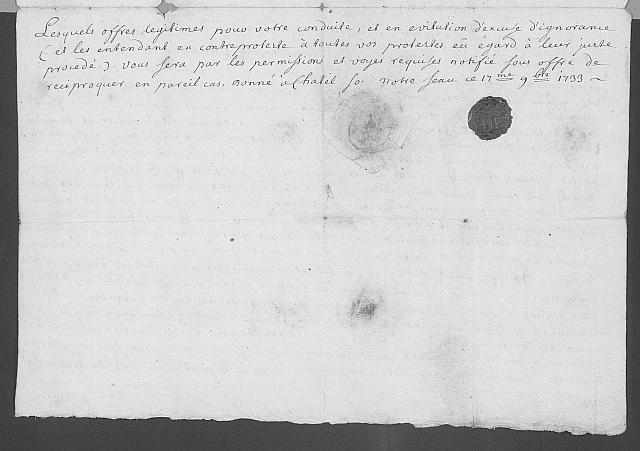 Lesquels offres legitimes pour votre conduite, et en evitation d'excuse d'ignorance
(et les entendant en contreproteste à toutes vos protestes eû egard à leur juste
procedé.) vous sera par les permissions et voyes requises notifié sous offre de
reciproquer en pareil cas. Donné a Chatél so. notre seau ce 17me 9bre 1733